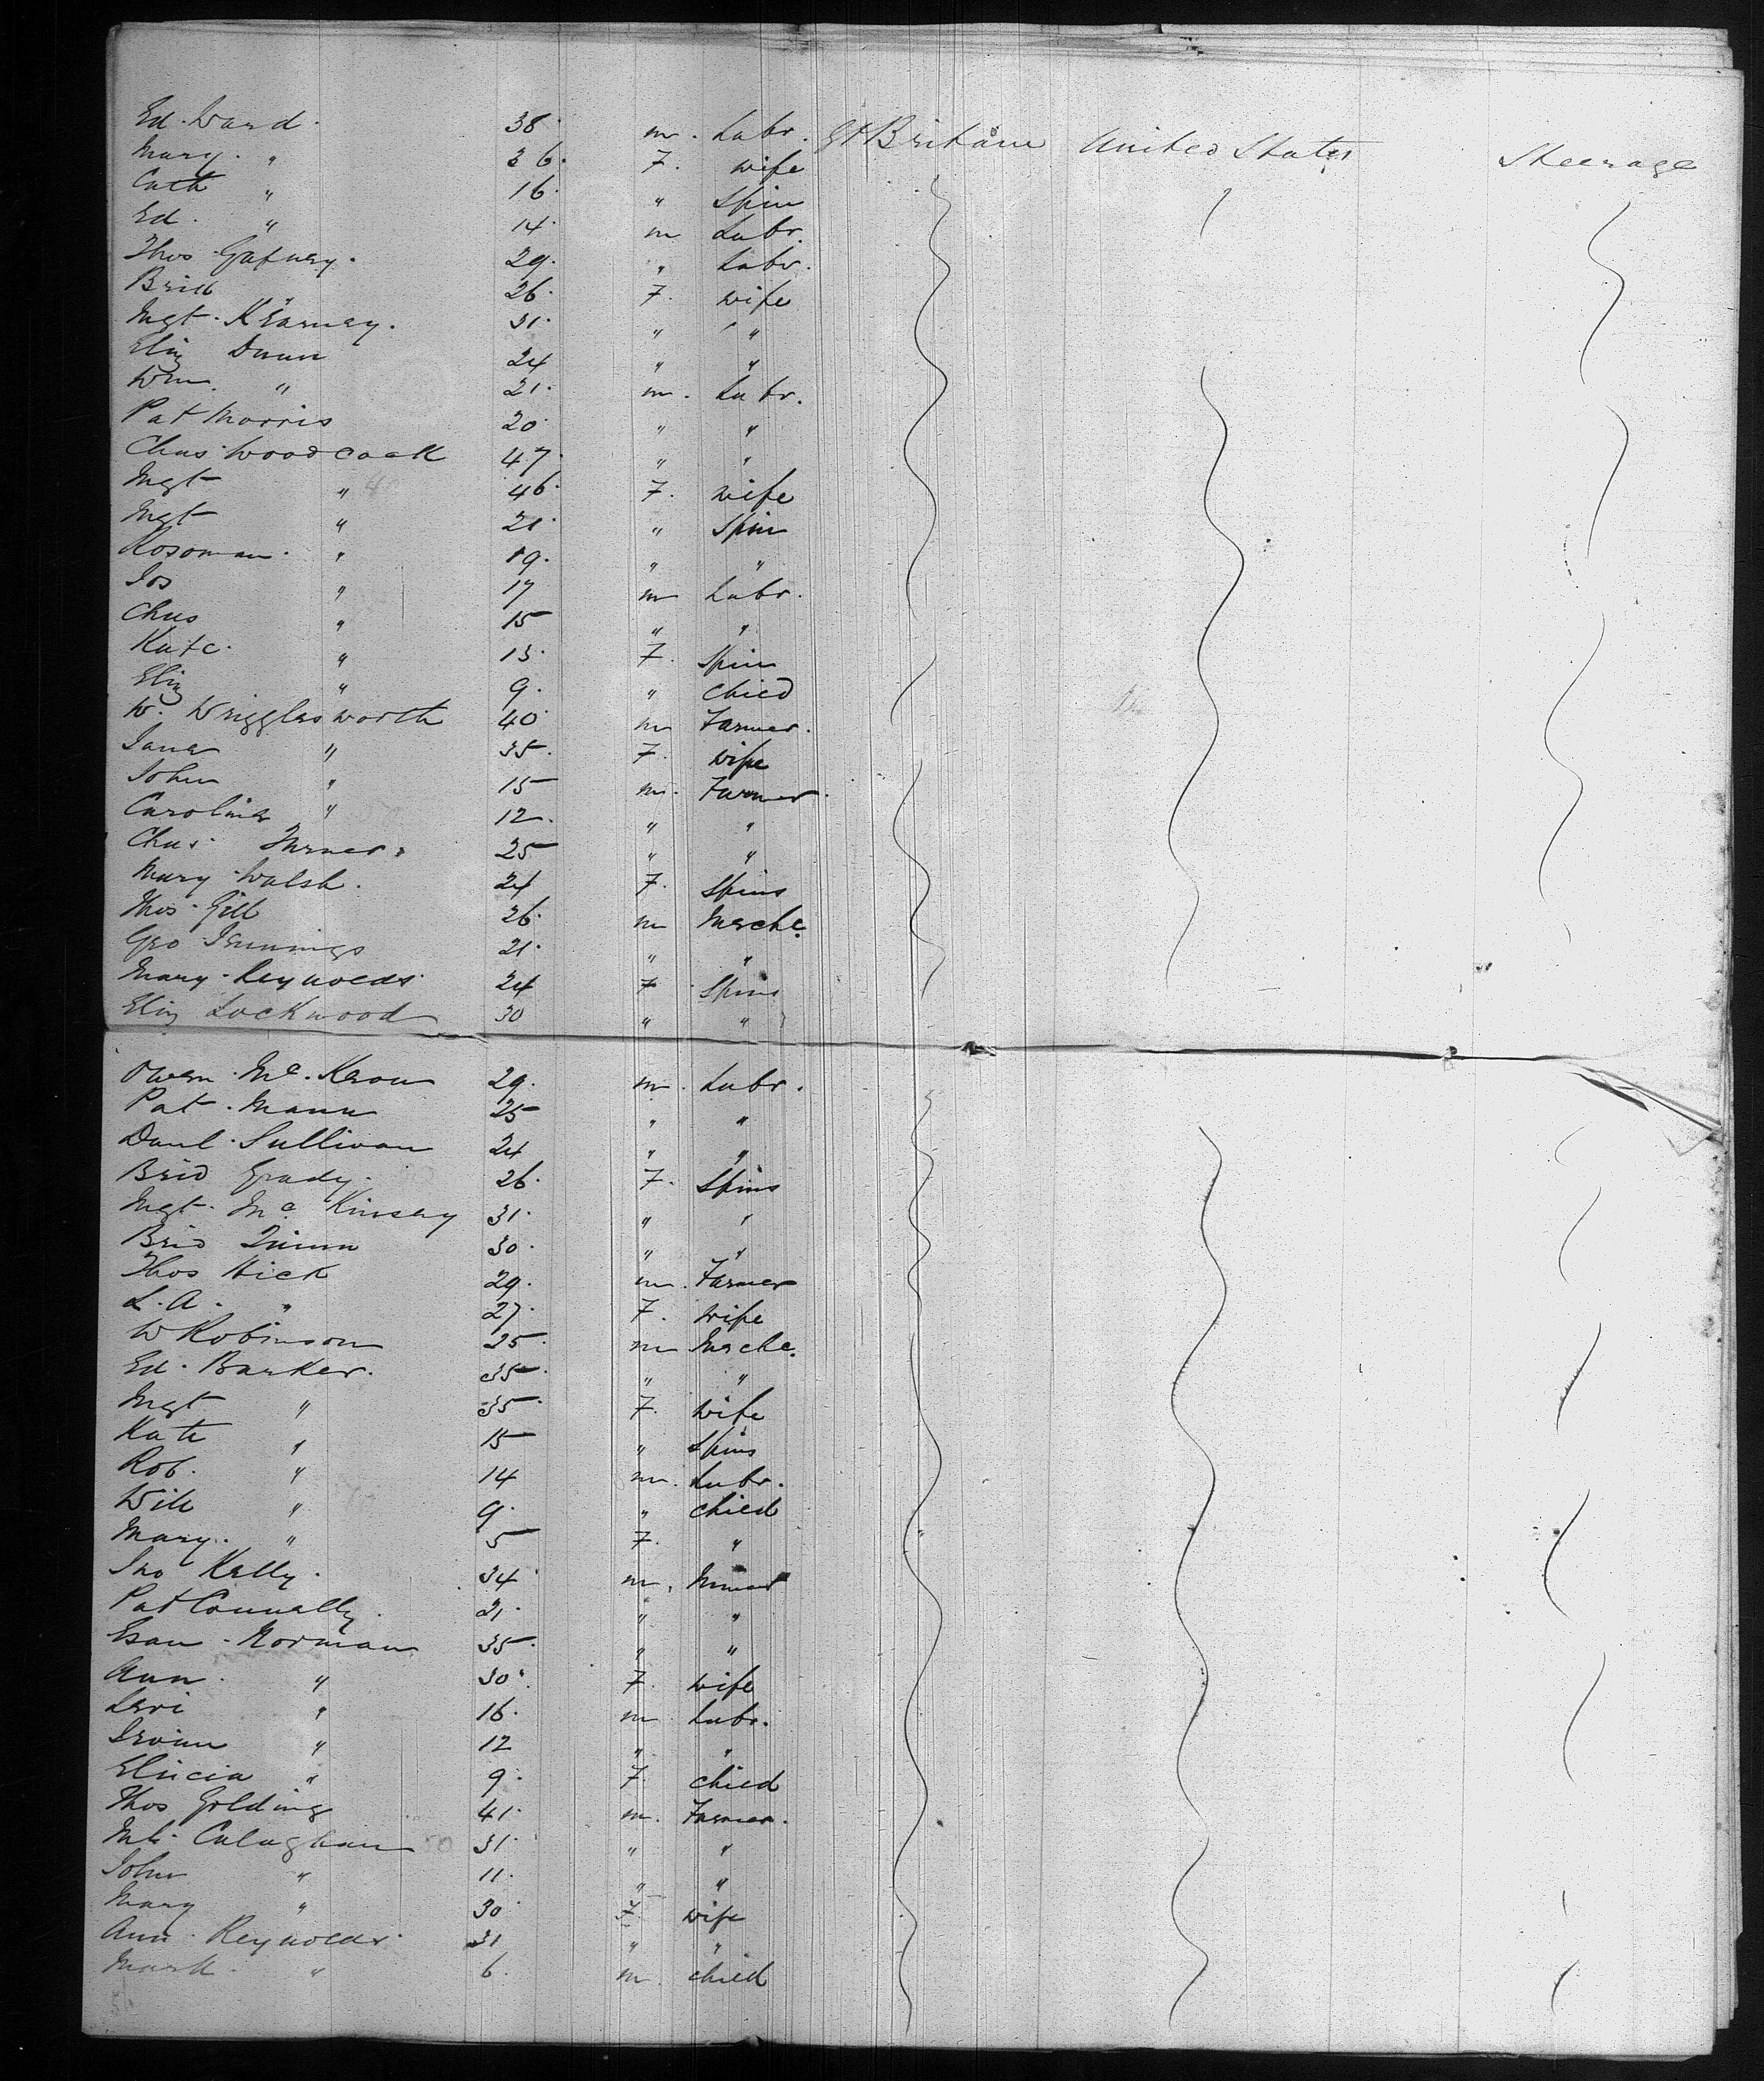 Ed. Ward. 38. m. Labr. Gt Britane United States Steerage
Mary. " 36. F. wife
Cath " 16. " Spin
Ed. " 14. m Labr.
Thos Gafney. 29. " Labr.
Brid " 26. F. wife
Mgt. Kearney. 31. " "
Eliz Dunn 24 " "
Wm. " 21. m. Labr.
Pat Morris 20. " "
Chas Woodcock 47. " "
Mgt " 46. F. wife
Mgt " 21. " Spin
Rosoman. " 19. " "
Jos " 17 m Labr.
Chas " 15 " "
Kate. " 13. F. Spin
Eliz " 9. " Child
W. Wrigglesworth 40. m Farmer.
Jane " 35. F. wife
John " 15 m. Farmer.
Caroline " 12. " "
Chas. Turner. 25 " "
Mary Walsh. 24 F. Spins
Thos Gill 26. m Mechc.
Geo Jennings 21. " "
Mary Reynolds. 24 F Spins
Eliz Lockwood 30 " "
Owen Mc. Keon 29. m. Labr.
Pat. Mann 25 " "
Danl. Sullivan 24 " "
Brid Grady. 26. F. Spins
Mgt. Mc. Kinsey 31. " "
Brid Quinn 30. " "
Thos Hick 29. m. Farmer
L. A. " 27. F. wife
W Robinson 25. m Mechc.
Ed. Barker. 35. " "
Mgt " 35. F. wife
Kate " 15 " Spins
Rob. " 14 m. Labr.
Will " 9. " Child
Mary. " 5 F. "
Jno Kelly. 34 m.
Pat Connally. 21. " "
Esau. Norman 35. " "
Ann. " 30. F. wife
Levi " 16. m Labr.
Irvin " 12 " "
Elicia " 9. F. child
Thos Golding 41. m. Farmer.
Ml. Calaghan 31. " "
John " 11. " "
Mary " 30. F. wife
Ann Reynolds. 31 " "
Mark. " 6. m. child